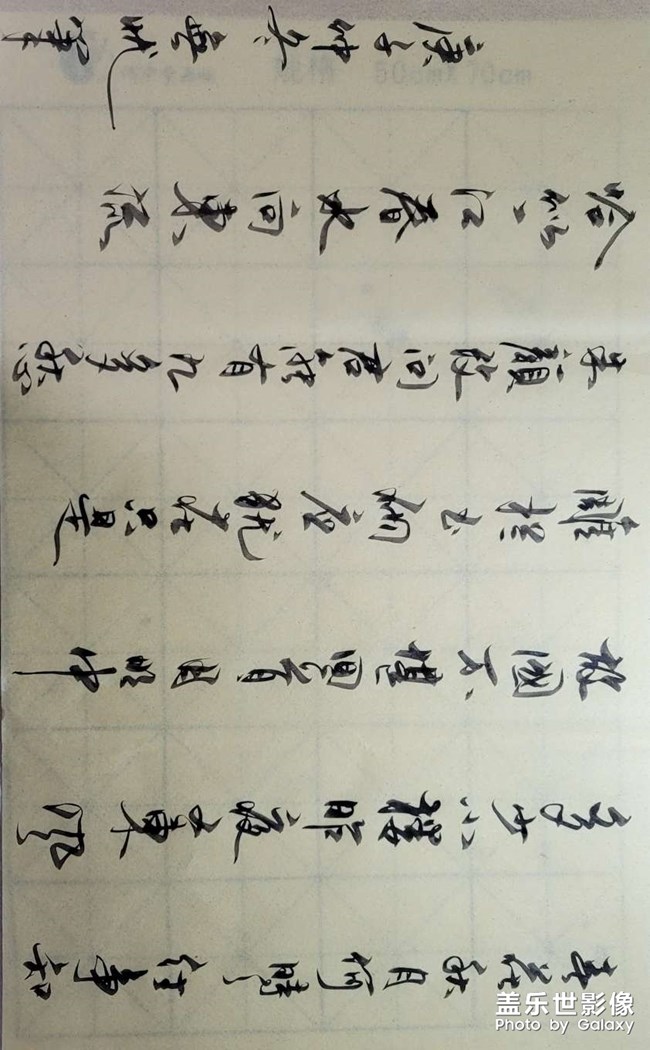 春花秋月何時了往事知
多少小樓昨夜又東風
故國不堪回首月明中
雕欄玉砌應猶在只是
朱顏改問君能有几多愁
恰似一江春水向東流
庚子仲冬
50cm×70cm
盖乐世影像
Photo by Galaxy